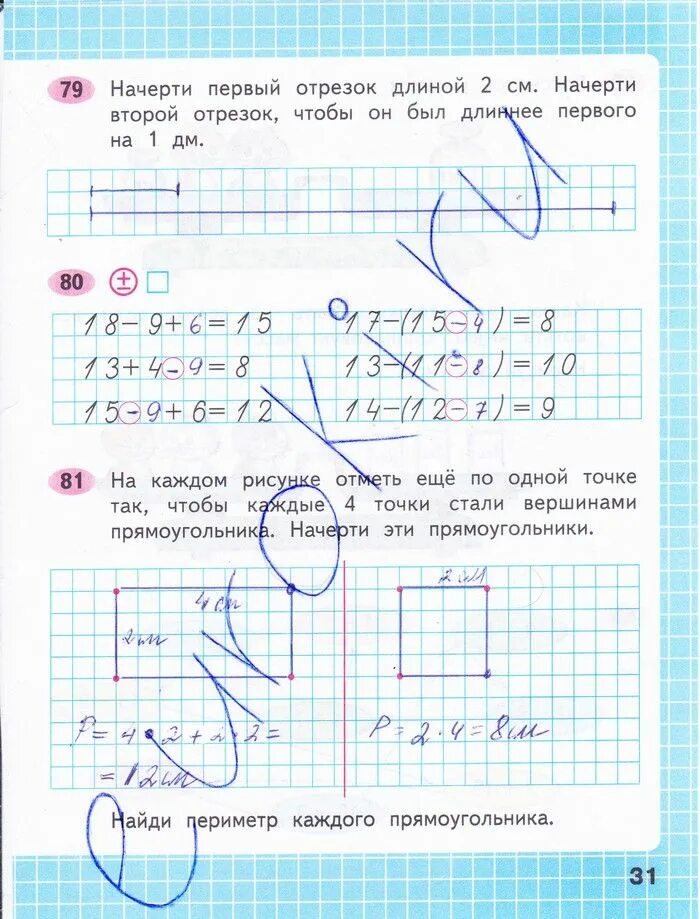 79 Начерти первый отрезок длиной 2 см. Начерти
второй отрезок, чтобы он был длиннее первого
на 1 дм.
80 ± □
18 - 9 + 6 = 15
17 - (15 - 4) = 8
13 + 4 - 9 = 8
13 - (11 - 8) = 10
15 - 9 + 6 = 12
14 - (12 - 7) = 9
81 На каждом рисунке отметь ещё по одной точке
так, чтобы каждые 4 точки стали вершинами
прямоугольника. Начерти эти прямоугольники.
4 см
2 см
2 см
P = 4 · 2 + 2 · 2 =
= 12 см
P = 2 · 4 = 8 см
Найди периметр каждого прямоугольника.
31